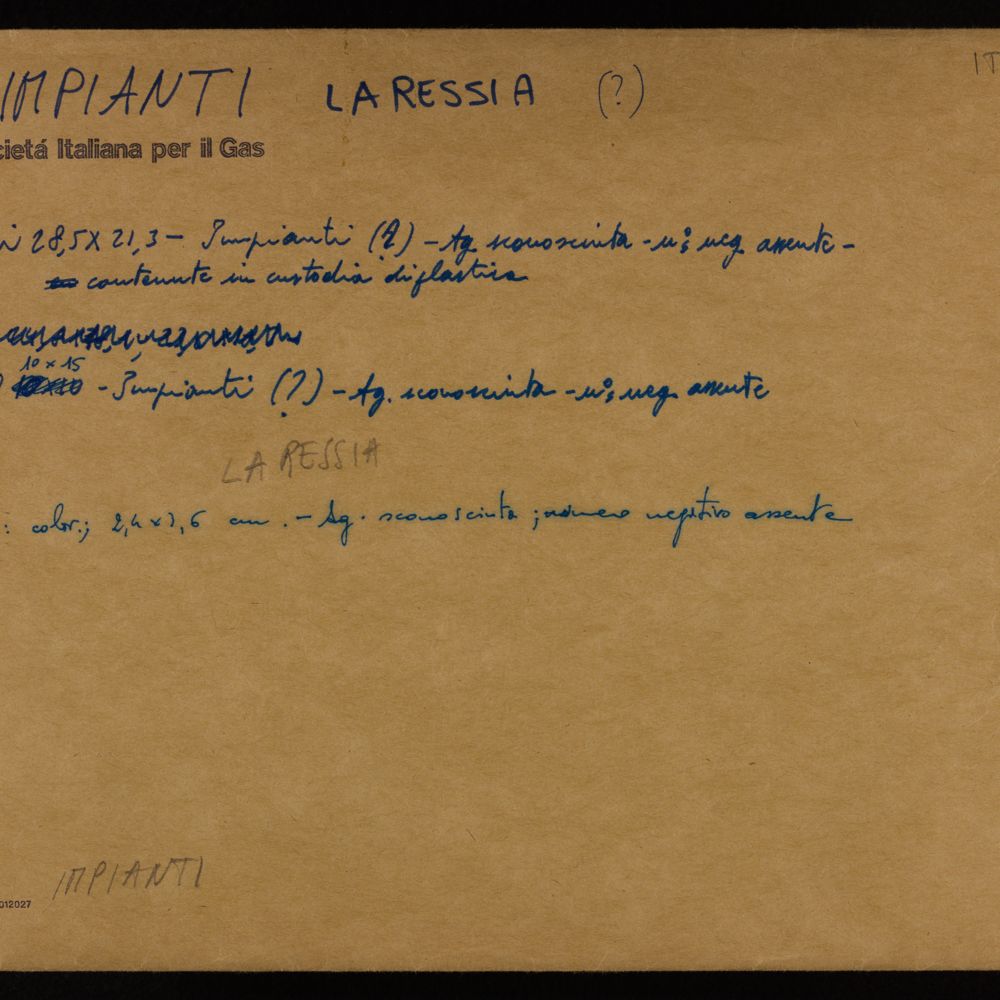 IMPIANTI LA RESSIA (?) IT
cietá Italiana per il Gas
i 28,5x21,3 - Impianti (?) - Ag. sconosciuta - n° neg. assente -
contenute in custodia di plastica
10 x 15
) - Impianti (?) - Ag. sconosciuta - n° neg. assente
LA RESSIA
: color.; 2,4 x 3,6 cm. - Ag. sconosciuta ; numero negativo assente
IMPIANTI
012027